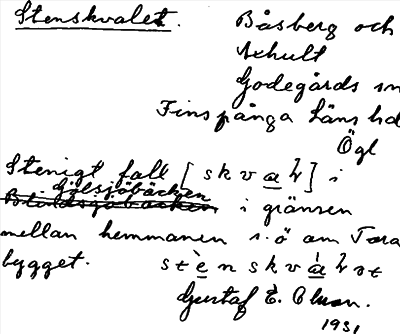 Stenskvalet. Båsberg och
Axhult
Godegårds sn
Finspånga läns hd
Ögl
Stenigt fall [skvaɫ] i
Gölsjöbäcken
i gränsen
mellan hemmanen s.ö om Tora
bygget. stènskváɫət
Gustaf E. Olsson.
1931